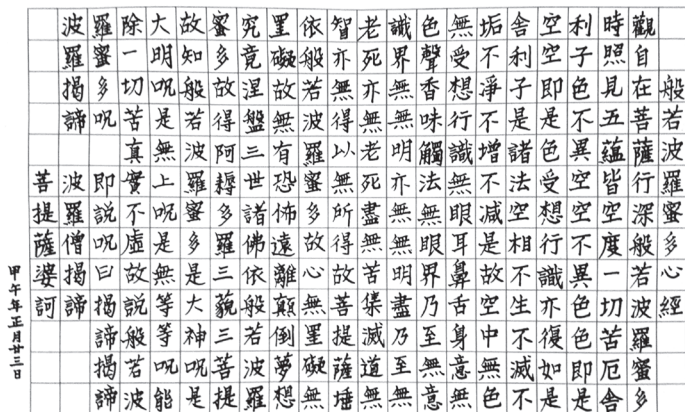 般若波羅蜜多心經
觀自在菩薩行深般若波羅蜜多
時照見五蘊皆空度一切苦厄舍
利子色不異空空不異色色即是
空空即是色受想行識亦復如是
舍利子是諸法空相不生不滅不
垢不淨不增不减是故空中無色
無受想行識無眼耳鼻舌身意無
色聲香味觸法無眼界乃至無意
識界無無明亦無無明盡乃至無
老死亦無老死盡無苦集滅道無
智亦無得以無所得故菩提薩埵
依般若波羅蜜多故心無罣礙無
罣礙故無有恐佈遠離顛倒夢想
究竟涅盤三世諸佛依般若波羅
蜜多故得阿耨多羅三藐三菩提
故知般若波羅蜜多是大神呪是
大明呪是無上呪是無等等呪能
除一切苦真實不虛故說般若波
羅蜜多呪即說呪曰揭諦揭諦
波羅揭諦波羅僧揭諦
菩提薩婆訶
甲午年正月廿三日